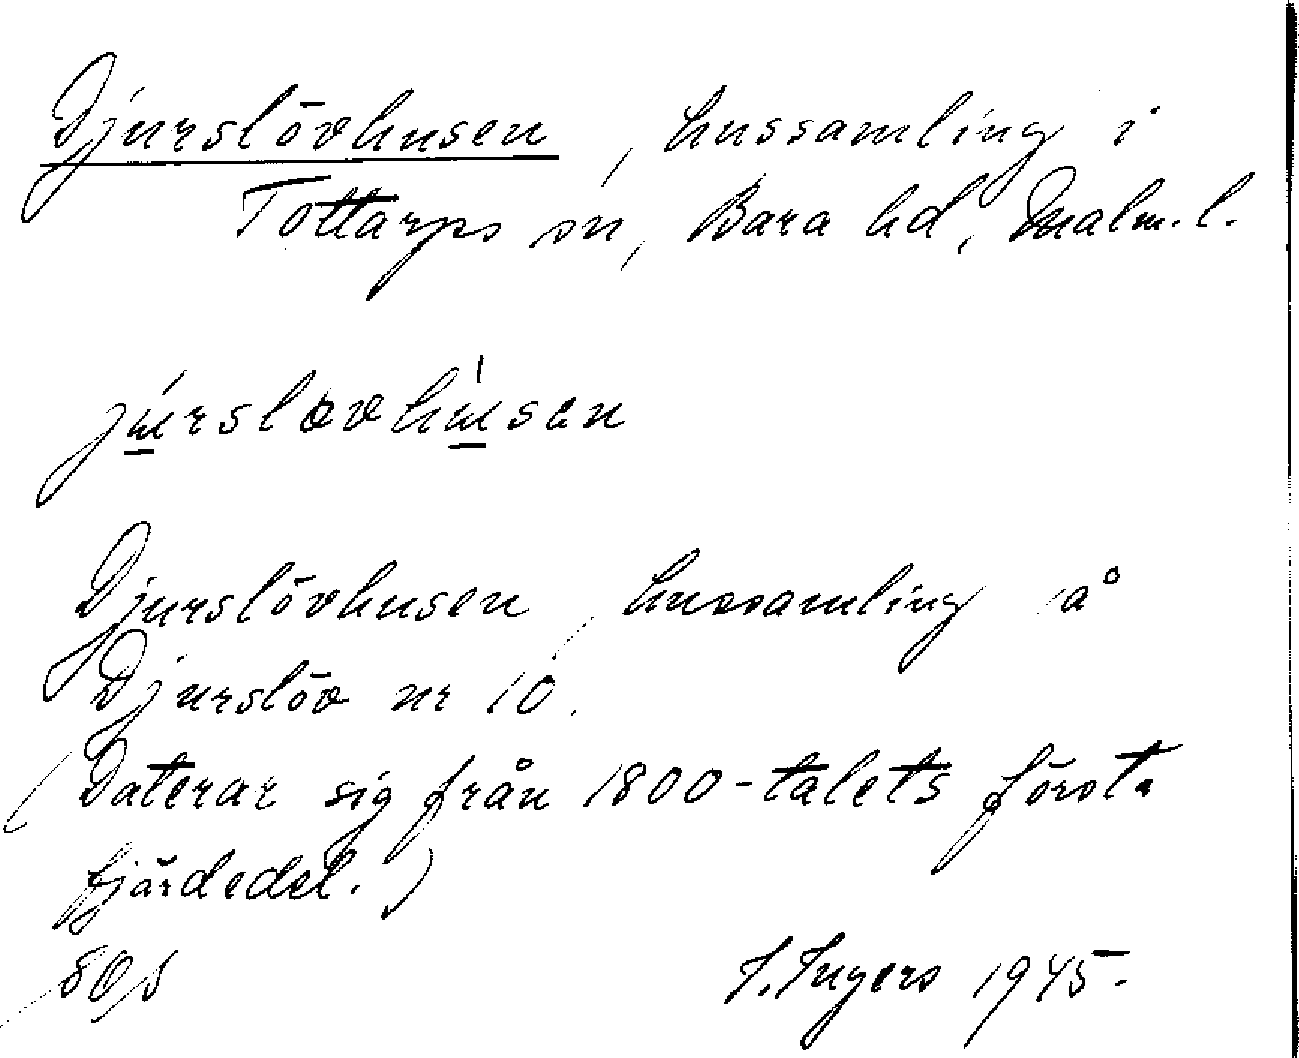 Djurslövhusen, hussamling i
Tottarps sn, Bara hd, Malm. l.
júrsløvhúsen
Djurslövhusen, hussamling å
Djurslöv nr 10.
(Daterar sig från 1800-talets första
fjärdedel.)
I. Ingers 1945.